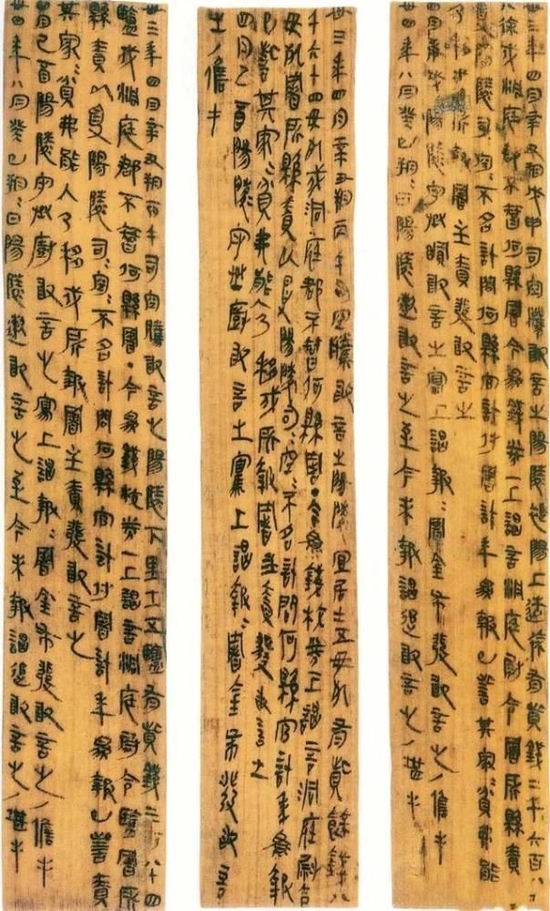 卅三年四月辛丑朔戊申司空騰敢言之陽陵褆陽上造徐有貲錢二千六百八十
八徐戍洞庭郡不智何縣署今為錢校券一上謁言洞庭尉令署所縣責
以受陽陵司=空=不名計問何縣官計付署計年為報已訾其家=貧弗能
入乃移戍所報署主責發敢言之
四月庚戌陽陵守丞敢言之寫上謁報=署金布發敢言之／儋手
卅四年八月癸巳朔=日陽陵遬敢言之至今未報謁追敢言之／堪手
卅三年四月辛丑朔丙午司空騰敢言之陽陵宜居士五毋死有貲餘錢八
千六十四毋死戍洞庭郡不智何縣署·今為錢校券一上謁言洞庭尉令
毋死署所縣責以受陽陵司=空=不名計問何縣官計年為報
已訾其家=貧弗能入乃移戍所報署主責發敢言之
四月己酉陽陵守丞廚敢言之寫上謁報=署金布發敢言
之／儋手
卅三年四月辛丑朔丙午司空騰敢言之陽陵下里士五鹽有貲錢三百八十四
鹽戍洞庭郡不智何縣署·今為錢校券一上謁言洞庭尉令鹽署所
縣責以受陽陵司=空=不名計問何縣官計付署計年為報已訾責
其家=貧弗能入乃移戍所報署主責發敢言之
四月己酉陽陵守丞廚敢言之寫上謁報=署金布發敢言之／儋手
卅四年八月癸巳朔=日陽陵遬敢言之至今未報謁追敢言之／堪手